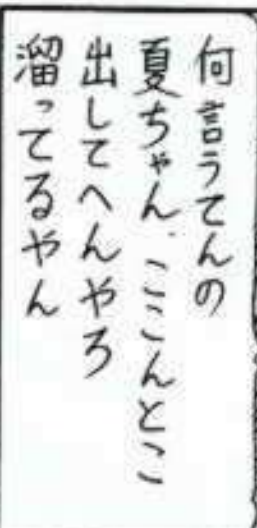 何言うてんの
夏ちゃん、ここんとこ
出してへんやろ
溜ってるやん